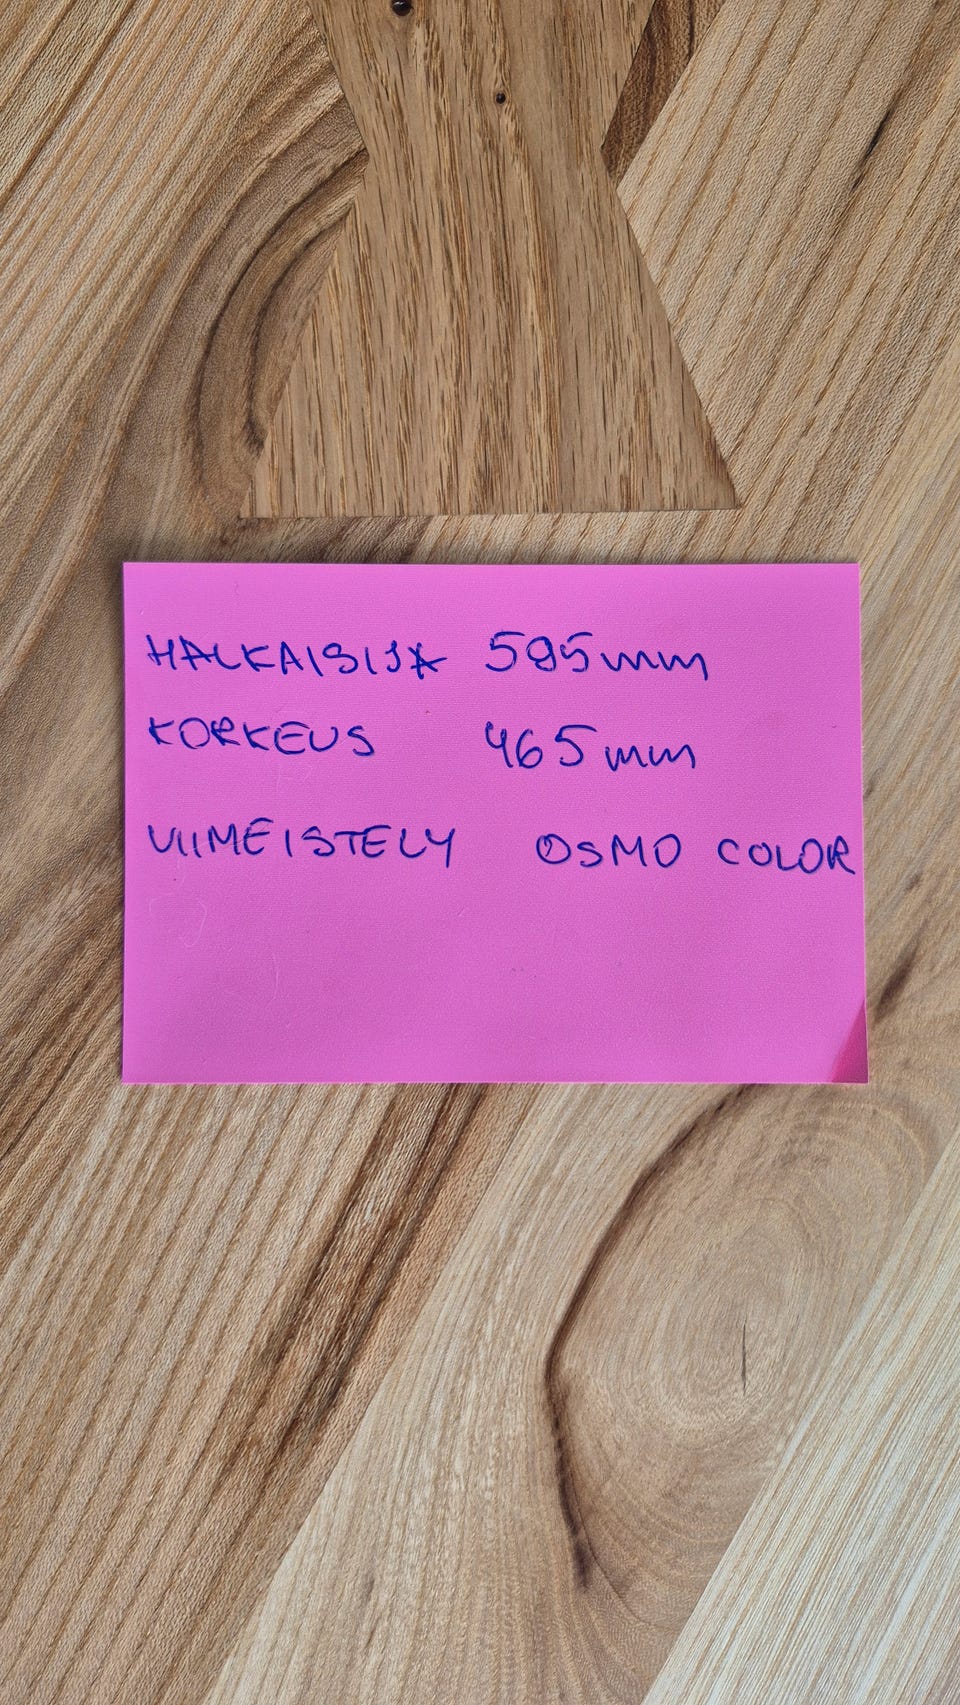 HALKAISIJA 595mm
KORKEUS 465mm
VIIMEISTELY OSMO COLOR